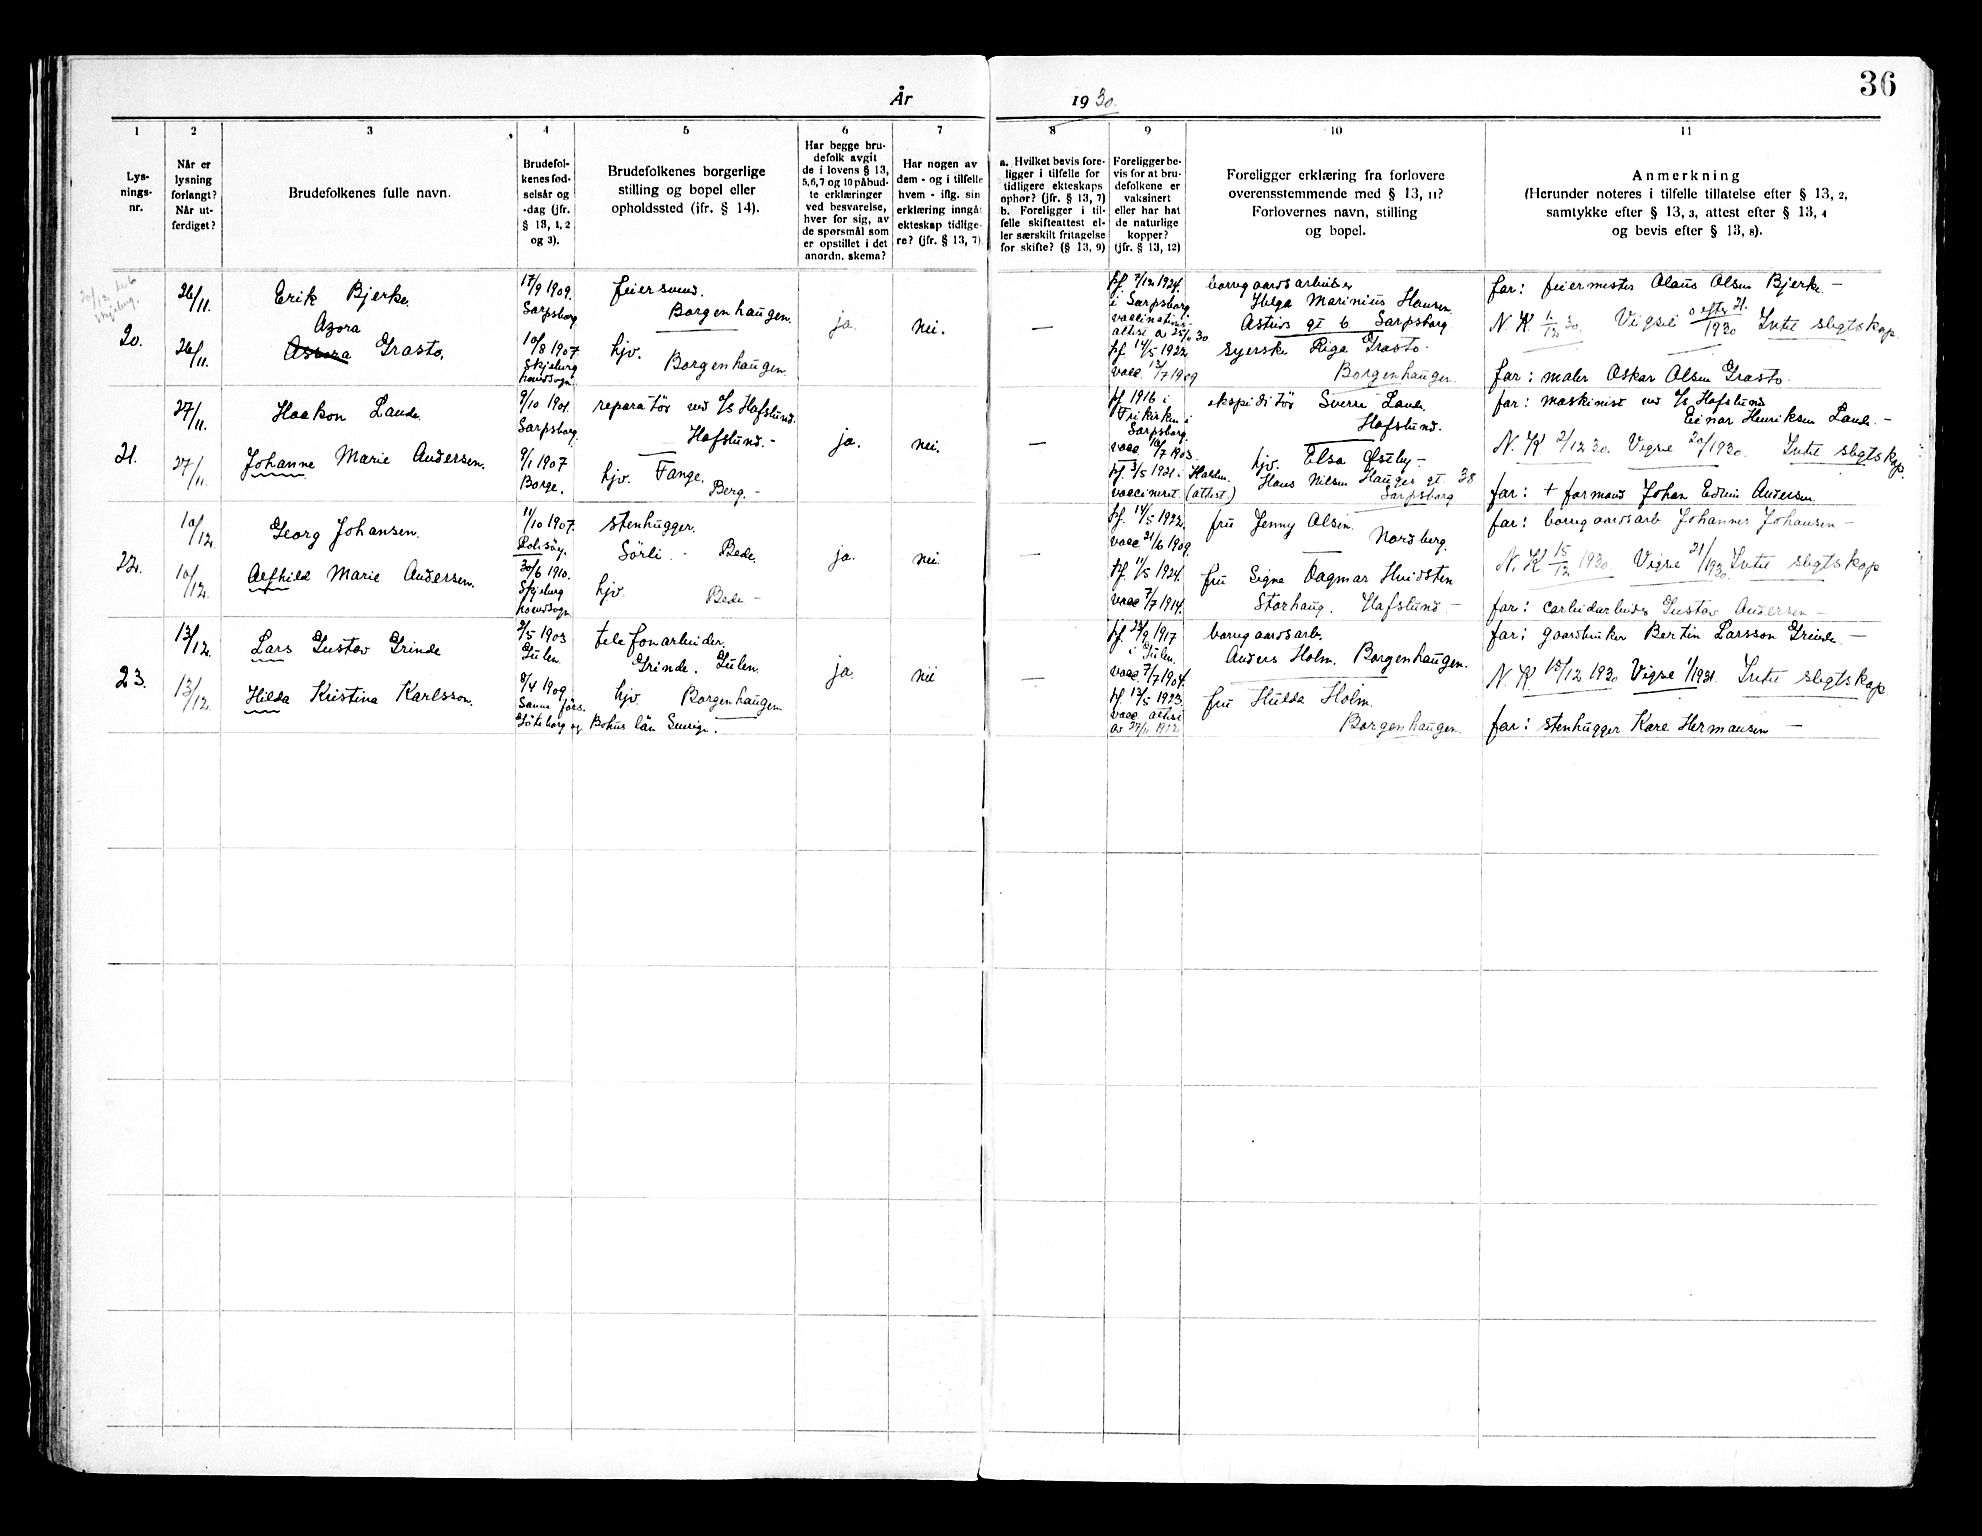 36
År 1930.
1
2
3
4
5
6
7
8
9
10
11
Lys-
nings-
nr.
Når er
lysning
forlangt?
Når ut-
ferdiget?
Brudefolkenes fulle navn.
Brudefol-
kenes fød-
selsår og
-dag (jfr.
§ 13, 1, 2
og 3).
Brudefolkenes borgerlige
stilling og bopel eller
opholdssted (ifr. § 14).
Har begge bru-
defolk avgit
de i lovens § 13,
5,6,7 og 10 påbud-
te erklæringer
ved besvarelse,
hver for sig, av
de spørsmål som
er opstillet i det
anordn. skema?
Har nogen av
dem - og i tilfelle
hvem - iflg. sin
erklæring inngåt
ekteskap tidlige-
re? (jfr. § 13, 7)
a. Hvilket bevis fore-
ligger i tilfelle for
tidligere ekteskaps
ophør? (jfr. § 13, 7)
b. Foreligger i til-
felle skifteattest el-
ler særskilt fritagelse
for skifte? (§ 13, 9)
Foreligger be-
vis for at bru-
defolkene er
vaksinert
eller har hat
de naturlige
kopper?
(jfr. § 13, 12)
Foreligger erklæring fra forlovere
overensstemmende med § 13, 11?
Forlovernes navn, stilling
og bopel.
Anmerkning
(Herunder noteres i tilfelle tillatelse efter § 13, 2,
samtykke efter § 13, 3, attest efter § 13, 4
og bevis efter § 13, 8).
20.
26/11.
Erik Bjerke.
17/9 1909.
Sarpsborg
feiersvend.
Borgenhaugen.
ja.
nei.
—
kf. 7/12 1924.
i Sarpsborg
vaccinations-
attest av 25/11 30
borugaardsarbeider
Helge Marinius Hansen.
Astrids gt 6 Sarpsborg
far: feiermester Olaus Olsen Bjerke. —
N. K. 1/12 30. Vigsel efter 21. 1930 Intet slegtskap
26/11.
Azora
Assora Grasto,
10/8 1907.
Skjeberg
hovedsogn
hjv. Borgenhaugen.
kf. 14/5 1922.
vacc. 13/7 1909
syerske Riga Grasto.
Borgenhaugen.
far: maler Oskar Olsen Grasto.
21.
27/11.
Haakon Lande.
9/10 1901.
Sarpsborg.
reparatør ved A/S Hafslund.
Hafslund.-
ja.
nei.
—
kf 1916 i
Frikirken i
Sarpsborg
vacc 10/7 1903.
ekspeditør Sverre Lande.
Hafslund.
far: maskinist ved A/S Hafslund
Einar Henriksen Lande. —
N. K 2/12 30. Vigsel 20/1930. Intet slegtskap.
27/11.
Johanne Marie Andersen.
9/1 1907
Borge.
hjv. Tange.
Berg. -
kf. 3/5 1921 i Halden.
vaccineret. (attest)
hjv. Elsa Østby -
Hans Nilsen Hauges gt 38
Sarpsborg
far: + formand Johan Edvin Andersen.
22.
10/12
Georg Johansen.
11/10 1907.
Rolvsøy.
stenhugger.
Sörli. - Bede.
ja.
nei
—
kf. 14/5 1922.
vacc 21/6 1909.
fru Jenny Olsen.
Nordberg.
far: borugaardsarb. Johannes Johansen —
N. K 15/12 1930. Vigsel 21/1930. Intet slegtskap
10/12.
Alfhild Marie Andersen.
30/6 1910.
Skjeberg
hovedsogn
hjv. Bede -
kf. 11/5 1924.
vacc 7/7 1914.
fru Signe Dagmar Hvidsten
Storhaug. Hafslund. -
far: carbidarbeider Gustav Andersen —
23.
13/12.
Lars Gustav Grinde
2/5 1903
Gulen.
telefonarbeider.
Grinde. Gulen.
ja.
nei
—
kf. 23/9 1917
i Gulen.
vacc 7/7 1904.
borugaardsarb.
Anders Holm. Borgenhaugen.
far: gaardbruker Bertin Larsson Grinde —
N. K. 15/12 1930 Vigsel 1/1931. Intet slegtskap
13/12.
Hilda Kristina Karlsson.
8/4 1909.
Sanne förs.
Göteborg og Bohus län Sverige.
hjv. Borgenhaugen
kf. 13/5 1923.
vacc. attest
av 27/11 1912
fru Hulda Holm.
Borgenhaugen.
far: stenhugger Kare Hermansen —